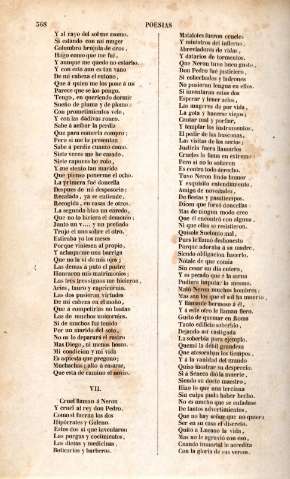 368
POESIAS
Y al rayo del sol me asomo.
Si estando con mi muger
Columbro
Hago como que me fui,
Y aunque me quedo no estorbo.
Y con esta
De mi cabeza el entono,
Que á quien me los pone á
Parece que se los pongo.
Tengo, en queriendo dormir
Sueño de pluma y de plomo:
Con prometimientos velo,
Y con las dádivas ronco.
Sabe á soltar la perdiz
Que para comerla compro;
Pero si me la presentan
Sabe á perdiz cuanto como.
Siete veces me he casado,
Siete capuces he roto,
Y me siento tan marido
Que pienso ponerme el ocho.
La primera fué doncella
Despues de mi desposorio:
Recatada, ya se entiende,
Recogida, en casa de otros.
La segunda hizo un enredo,
Que no lo hiciera el demonio:
Junto un v..., y un preñado
Trajo el uno sobre el otro.
Estiraba yo los meses
Porque viniesen al propio,
Y achaqueme una barriga
Que no la vi de mis ojos:
Las demas á puto el postre
Honraron mis matrimonios;
Las tres tres signos me hicieron,
Aries, tauro y capricornio.
Las dos pusieron virtudes
De mi cabeza en el
Que á competirlas no bastan
Los de muchos unicornios.
Si de muchos fui tenido
Por un marido del soto,
No me lo deparará el rastro
Mas Diego, ni menos hosco.
Mi condicion y mi vida
Es aquesta que pregono;
Muchachas alto á casarse,
Que esta de camino el novio.
VII.
Cruel llaman á Neron
Y cruel al rey don Pedro,
Como si fueran los dos
Hipócrates y Galeno.
Estos dos sí que inventaron
Las purgas y cocimientos,
Las dietas y medicinas
Boticarios y barberos.
Matalotes fueron crueles
Y ministros del infierno,
Abreviadores de vida,
Y datarios de tormentos.
Que Neron tuvo buen gusto,
Don Pedro fue justiciero,
Si cohechados y ladrones
No pusieran lengua en ellos.
Si inventaran estos dos
Esperar y tener celos,
Las mugeres de por vida,
La gota y hacerse viejos;
Cantar mal y porfiar,
Y templar los instrumentos,
El pedir de las busconas,
Las visitas de los necios;
Justicia fuera llamarles
Crueles la fama en estremo;
Pero si no lo soñaron
Es contra todo derecho.
Tuvo Neron lindo humor
Y exquisito entendimiento,
Amigo de novedades,
De fiestas y pasatiempos.
Dicen que forzó doncellas
Mas de ningun modo creo
Que él encontró con alguna,
Ni que ellas se resistieron.
Quisole Suetonio mal,
Pues le llamó deshonesto
Porque adoraba á su madre,
Siendo obligacion hacerlo.
Nótale de que comia
Sin cesar un dia entero,
Y es pecado que á la sarna
Pudiera imputar lo mesmo.
Mató Neron muchos hombres;
Mas son los que el sol ha muerto,
Y llámanle hermoso á él,
Y á este otro le llaman fiero.
Gustó de quemar en Roma
Tanto edificio soberbio,
Dejando así castigada
La soberbia para ejemplo.
Quemó la débil grandeza
Que atesoraban los tiempos,
Y á la vanidad del mundo
Quiso mostrar su desprecio.
Si á Séneca dió la muerte,
Siendo su docto maestro,
Hizo lo que una terciana
Sin culpa pudo haber hecho.
No es mucho que se enfadase
De tantos advertimientos,
Que no hay señor que no quiera
Ser en su casa el discreto.
Quitó á Lucano la vida,
Mas no le agravió con eso,
Cuando inmortal le acredita
Con la gloria de sus versos.